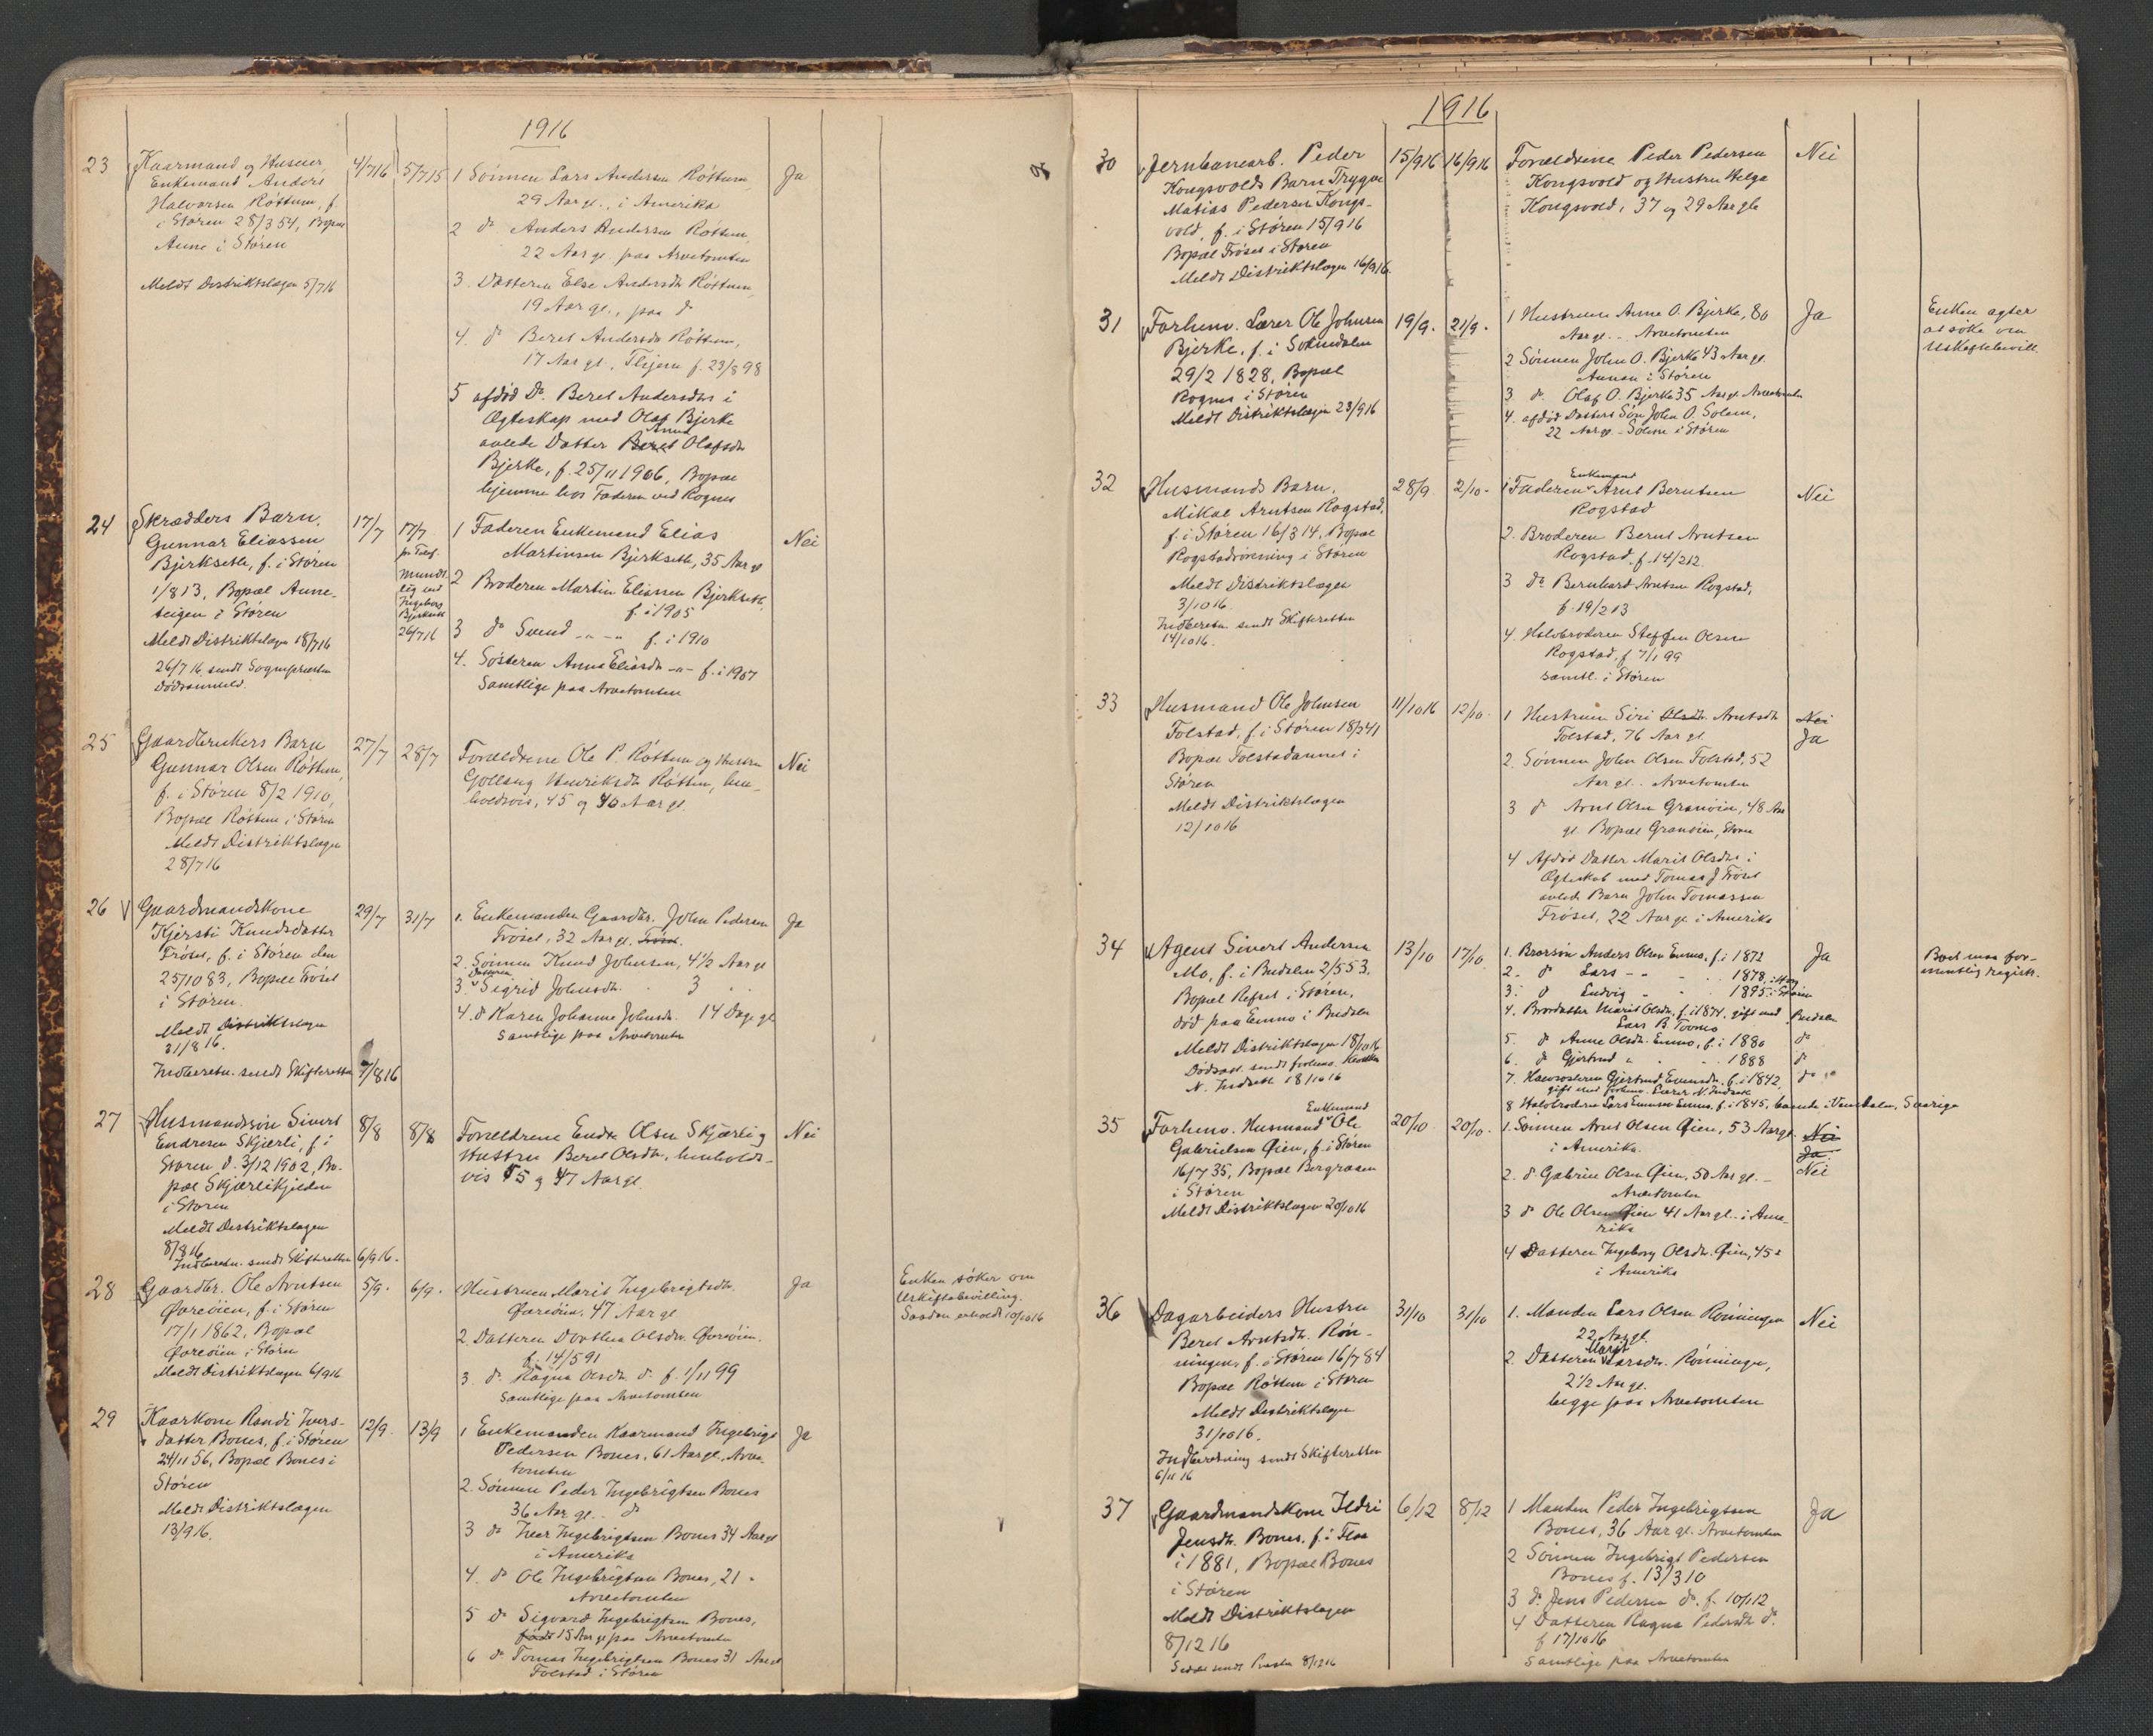 1916
23 Kaarmand og Husmer, 4/7 16 5/7 15 1 Sönnen Lars Andersen Röttum, Ja
Enkemand Anders 29 Aar gl., i Amerika
Halvorsen Röttum, f. 2 do Anders Andersen Röttum,
i Støren 28/3 54, Bopæl 22 Aar gl. paa Arvetomten
Aune i Støren 3. Datteren Else Andersdtr Röttum,
Meldt Distriktslægen 5/7 16 19 Aar gl., paa do
4. do Beret Andersdtr Röttum,
17 Aar gl., f. 23/8 98
5 afdød Dr. Beret Andersdtrs i
Ægteskap med Olaf Bjerke
avlede Datter Beret Anna Olafsdtr
Bjerke, f. 25/11 1906, Bopæl
hjemme hos Faderen ved Rognes
24 Skrædders Barn, 17/7 17/7 1 Faderen Enkemand Elias Nei
Gunnar Eliassen pr Telef. Martinsen Bjerkseth, 35 Aar gl
Bjerkseth, f. i Støren mundt- 2 Broderen Martin Eliassen Bjerkseth,
1/8 13, Bopæl Aune- lig ved f. i 1905
teigen i Støren Ingeborg 3 do Svend -"- -"- f. i 1910
Meldt Distriktslægen 18/7 16 Bjerkseth 26/7 16 4. Søsteren Anna Eliasdtr -"- f. i 1907
26/7 16 sendt Sognepresten Samtlige paa Arvetomten
Dødsanmeld.
25 Gaardbrukers Barn 27/7 28/7 Foreldrene Ole P. Röttum og Hustru Nei
Gunnar Olsen Röttum, Gollaug Henriksdtr Röttum, hen-
f. i Støren 8/2 1910, holdsvis, 45 og 40 Aar gl.
Bopæl Röttum i Støren
Meldt Distriktslægen
28/7 16
26 Gaardmandskone 29/7 31/7 1. Enkemanden Gaardbr. John Pedersen Ja
Kjersti Knudsdatter Frøset, 32 Aar gl. Frøset.
Frøset, f. i Støren den 2. Sönnen Knud Johnsen, 4 1/2 Aar gl
25/10 83, Bopæl Frøset 3. Datteren Sigrid Johnsdtr. 3 " "
i Støren. 4. do Karen Johanne Johnsdtr. 14 Dage gl.
Meldt Distriktslægen Samtlige paa Arvetomten
31/8 16.
Indberetn. sendt Skifteretten 7/8 16
27 Husmandssøn Sivert 8/8 8/8 Foreldrene Endre Olsen Skjærli og Nei
Endresen Skjærli, f. i Hustru Beret Olsdtr, henholds-
Støren d. 3/12 1902, Bo- vis 55 og 47 Aar gl.
pæl Skjærlikjelden
i Støren
Meldt Distriktslægen
8/8 16
Indberetn. sendt Skifteretten 6/9 16.
28 Gaardbr. Ole Arntsen 5/9. 6/9. 1 Hustruen Marit Ingebrigtsdtr. Ja Enken søker om
Øreöien, f. i Støren Øreöien. 47 Aar gl Uskiftebevilling.
17/1 1862, Bopæl 2. Datteren Dorthea Olsdtr. Øreöien. Saadan erholdt 10/10 16
Øreöien i Støren f. 14/5 91
Meldt Distriktslægen 6/9 16 3. do Ragna Olsdtr. do f. 1/11 99
Samtlige paa Arvetomten
29 Kaarkone Randi Ivers- 12/9. 13/9 1 Enkemanden Kaarmand Ingebrigt Ja
datter Bones, f. i Støren Pedersen Bones, 61 Aar gl., Arve-
24/11 56, Bopæl Bones i tomten
Støren 2. Sönnen Peder Ingebrigtsen Bones
Meldt Distriktslægen 36 Aar gl. do
13/9 16. 3 do Iver Ingebrigtsen Bones 34 Aar gl
i Amerika
4. do Ole Ingebrigtsen Bones, 21 "
Arvetomten
5 do Sigvard Ingebrigtsen Bones,
født 15 Aar gl paa Arvetomten
6 do Tomas Ingebrigtsen Bones 31 Aar gl
Folstad i Støren
1916
30 Jernbanearb. Peder 15/9 16 16/9 16 Foreldrene Peder Pedersen Nei
Kongsvolds Barn Trygve Kongsvold og Hustru Helga
Matias Pedersen Kongs- Kongsvold, 37 og 29 Aar gle
vold, f. i Støren 15/9 16
Bopæl Frøset i Støren
Meldt Distriktslægen 16/9 16.
31 Forhenv. Lærer Ole Johnsen 19/9. 21/9. 1 Hustruen Anne O. Bjerke, 80 Ja Enken agter
Bjerke, f. i Soknedalen Aar gl. .. Arvetomten at søke om
29/2 1828, Bopæl 2 Sönnen John O. Bjerke 43 Aar gl. Uskiftebevill.
Rognes i Støren Aunan i Støren
Meldt Distriktslægen 23/9 16 3 do Olaf O. Bjerke 35 Aar gl. Arvetomten
4. afdød Datters Søn John O. Solem,
22 Aar gl. - Solem i Støren
32 Husmands Barn, 28/9 2/10. 1 Faderen Enkemand Arnt Berntsen Nei
Mikal Arntsen Rogstad, Rogstad
f. i Støren 16/3 14, Bopæl 2. Broderen Bernt Arntsen
Rogstadrönning i Støren Rogstad, f. 14/2 12.
Meldt Distriktslægen 3 do Bernhard Arntsen Rogstad,
3/10 16. f. 19/2 13
Indberetn. sendt Skifteretten 4. Halvbroderen Steffen Olsen
14/10 16. Rogstad, f 7/1 99
samtl. i Støren
33 Husmand Ole Johnsen 11/10 16 12/10. 1 Hustruen Siri Olsdtr. Arntsdtr Nei
Folstad, f. i Støren 18/2 41 Folstad, 76 Aar gl. Ja
Bopæl Folstadaunet i 2. Sönnen John Olsen Folstad, 52
Støren Aar gl. .. Arvetomten
Meldt Distriktslægen 3 do Arnt Olsen Granöien, 48 Aar
12/10 16 gl. Bopæl Granöien, Støren
4 Afdød Datter Marit Olsdtrs i
Ægteskab med Tomas J Frøset
avlede Barn John Tomassen
Frøset, 22 Aar gl. i Amerika
34 Agent Sivert Andersen 13/10 17/10 1. Brorsøn Anders Olsen Enmo, f. i 1872 Ja Boet maa for-
Mo, f. i Budalen 2/5 53, 2. do Lars -"- " .. 1878, i mentlig registr.
Bopæl Refset i Støren, 3. do Ludvig " " .. 1895 i Støren
død paa Enmo i Budalen 4. Brordatter Marit Olsdtr., f. i 1874, gift med Budalen
Meldt Distriktslægen 18/10 16 Lars B.
Dødsanl. sendt forhenv. 5. do Anne Olsdtr. Enmo, f. i 1880 do
N. Indseth 18/10 16 6. do Gjertrud " " .. 1888 do
7. Halvsøsteren Gjertrud Evensdtr. f. i 1842, do
gift med forhenv. Lærer N. Indseth
8 Halvbroderen Lars Evensen Enmo, f. i 1845, boende i Vemdalen, Sverige
35 Forhenv. Husmand Enkemand Ole 20/10 20/10. 1. Sönnen Arnt Olsen Øien, 53 Aar gl. Nei
Gabrielsen Øien, f. i Støren i Amerika. Ja.
16/7 35, Bopæl Bergrosen 2. do Gabriel Olsen Øien, 50 Aar gl. - Nei
i Støren Arvetomten
Meldt Distriktslægen 20/10 16 3 do Ole Olsen Øien 41 Aar gl. i Ame-
rika
4 Datteren Ingeborg Olsdtr. Øien, 45 "
i Amerika
36 Dagarbeiders Hustru 31/10 31/10 1. Manden Lars Olsen Rönningen Nei
Beret Arntsdtr. Rön- 22 Aar gl.
ningen, f. i Støren 16/7 84 2. Datteren Marit Larsdtr. Rönningen,
Bopæl Röttum i Støren 2 1/2 Aar gl.
Meldt Distriktslægen begge paa Arvetomten
31/10 16.
Indberetning sendt Skifteretten
6/11 16
37 Gaardmandskone Ildri 6/12 8/12 1 Manden Peder Ingebrigtsen Ja
Jensdtr. Bones, f. i Flaa Bones, 36 Aar gl. Arvetomten
i 1881, Bopæl Bones 2 Sönnen Ingebrigt Pedersen
i Støren Bones f. 13/3 10
Meldt Distriktslægen 3 do Jens Pedersen do. f. 10/1 12
8/12 16 4 Datteren Ragna Pedersdtr do.
Seddel sendt Presten 8/12 16 f 17/10 16
Samtlige paa Arvetomten